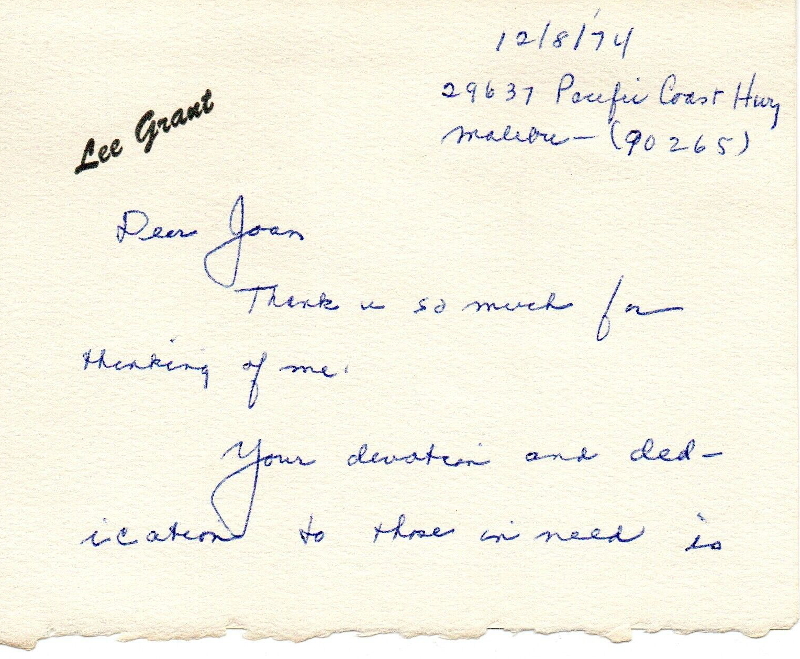 12/8/74
29637 Pacific Coast Hwy
Malibu — (90265)
Lee Grant
Dear Joan
Thank u so much for
thinking of me.
Your devotion and ded-
ication to those in need is